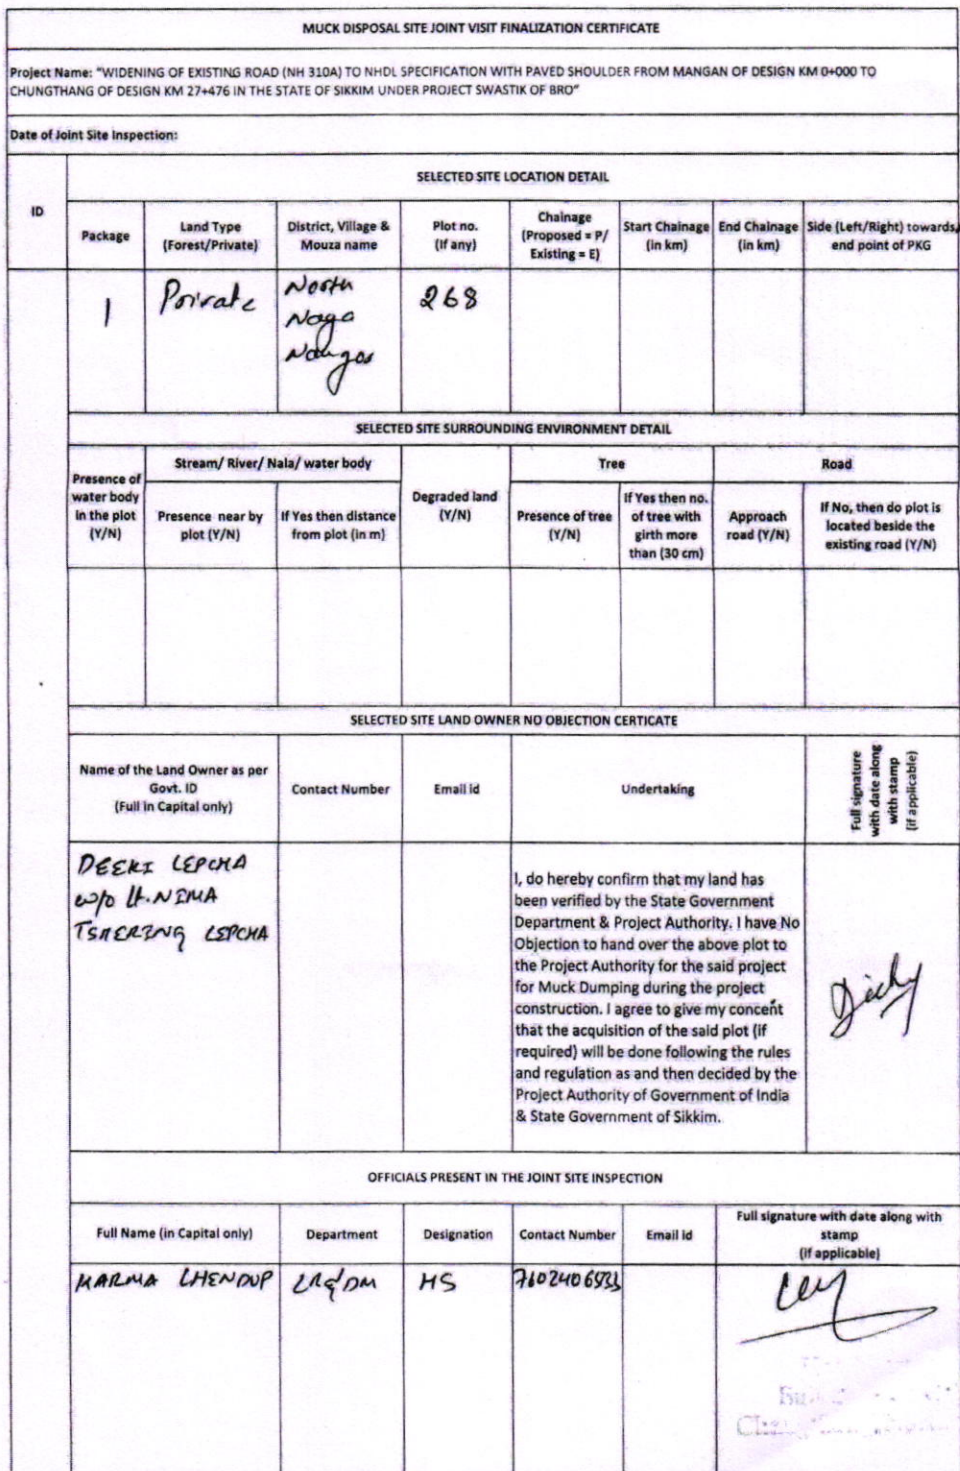 MUCK DISPOSAL SITE JOINT VISIT FINALIZATION CERTIFICATE
Project Name: "WIDENING OF EXISTING ROAD (NH 310A) TO NHDL SPECIFICATION WITH PAVED SHOULDER FROM MANGAN OF DESIGN KM 0+000 TO
CHUNGTHANG OF DESIGN KM 27+476 IN THE STATE OF SIKKIM UNDER PROJECT SWASTIK OF BRO"
Date of Joint Site Inspection:
ID
SELECTED SITE LOCATION DETAIL
Package
Land Type
(Forest/Private)
District, Village &
Mouza name
Plot no.
(If any)
Chainage
(Proposed = P/
Existing = E)
Start Chainage
(in km)
End Chainage
(in km)
Side (Left/Right) towards
end point of PKG
1
Private
North
Naga
268
SELECTED SITE SURROUNDING ENVIRONMENT DETAIL
Presence of
water body
in the plot
(Y/N)
Stream/ River/ Nala/ water body
Presence near by
plot (Y/N)
If Yes then distance
from plot (in m)
Degraded land
(Y/N)
Tree
Presence of tree
(Y/N)
If Yes then no.
of tree with
girth more
than (30 cm)
Road
Approach
road (Y/N)
If No, then do plot is
located beside the
existing road (Y/N)
SELECTED SITE LAND OWNER NO OBJECTION CERTICATE
Name of the Land Owner as per
Govt. ID
(Full in Capital only)
Contact Number
Email id
Undertaking
Full signature
with date along
with stamp
(if applicable)
DEEKI LEPCHA
w/o Lt. NIMA
TSHERING LEPCHA
I, do hereby confirm that my land has
been verified by the State Government
Department & Project Authority. I have No
Objection to hand over the above plot to
the Project Authority for the said project
for Muck Dumping during the project
construction. I agree to give my concent
that the acquisition of the said plot (if
required) will be done following the rules
and regulation as and then decided by the
Project Authority of Government of India
& State Government of Sikkim.
OFFICIALS PRESENT IN THE JOINT SITE INSPECTION
Full Name (in Capital only)
Department
Designation
Contact Number
Email id
Full signature with date along with
stamp
(if applicable)
KARMA LHENDUP
LR&DM
HS